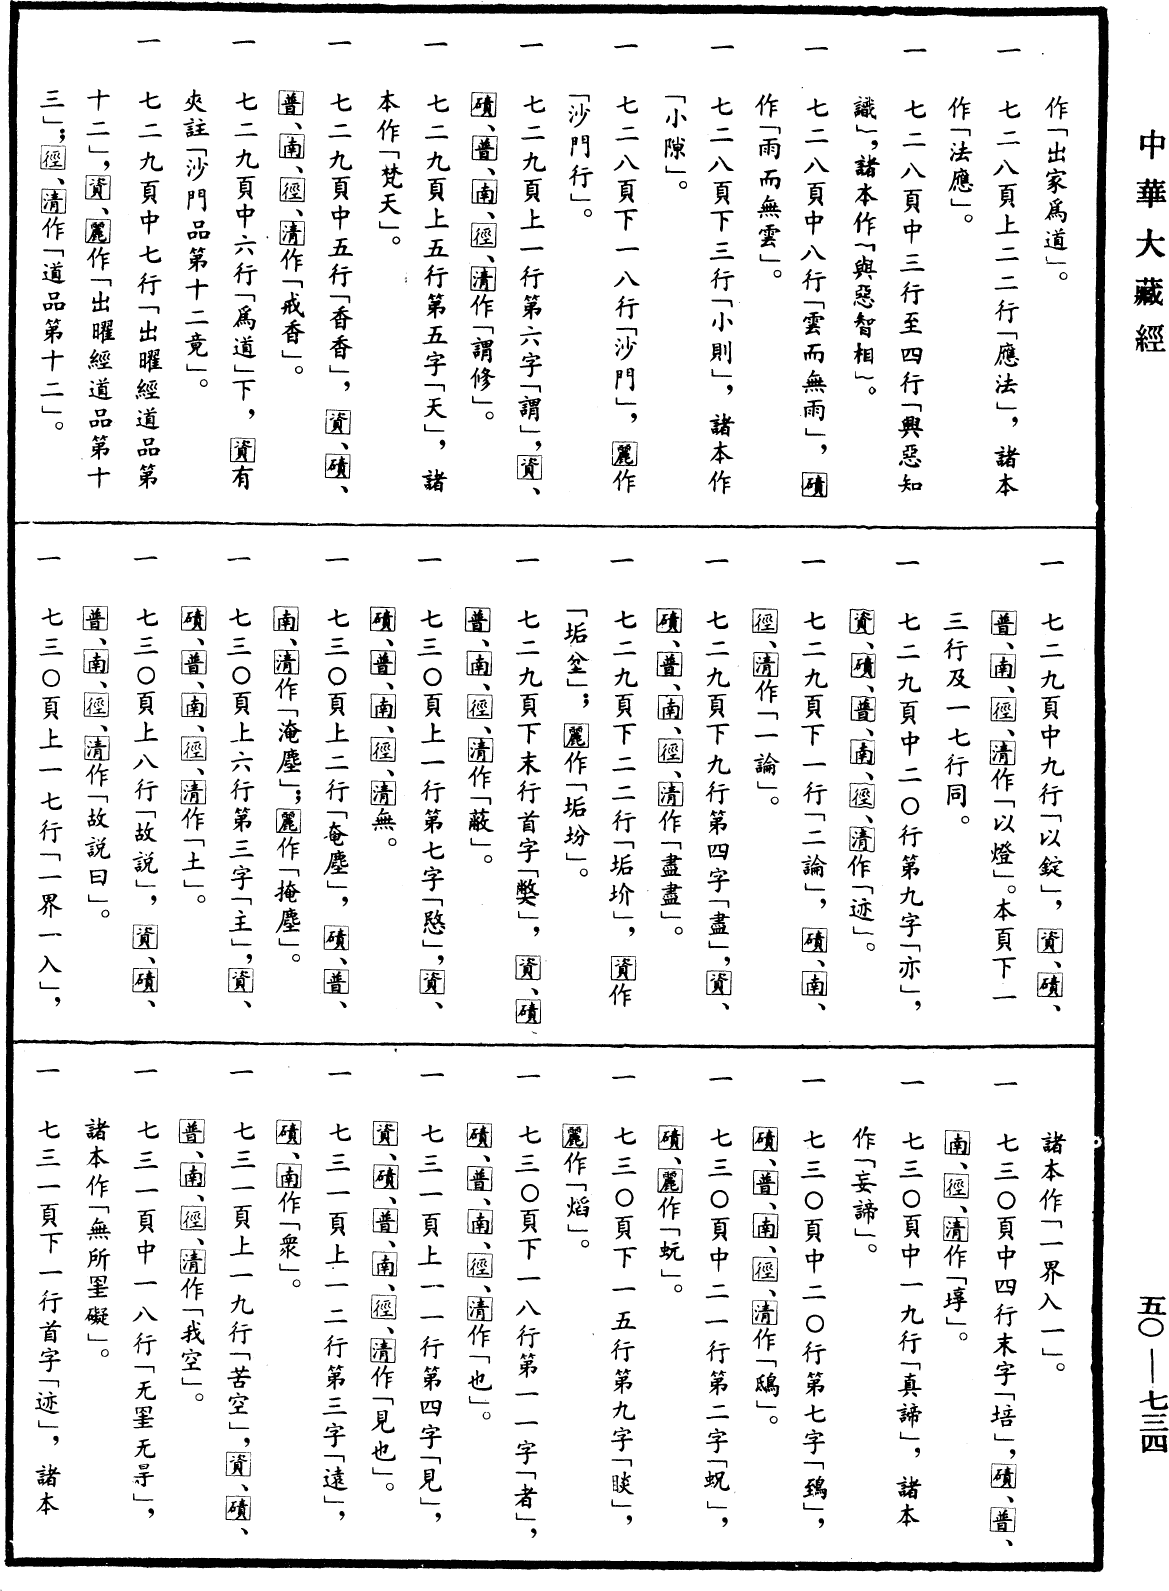 中華大藏經
作「出家爲道」。
一 七二八頁上二二行「應法」，諸本
作「法應」。
一 七二八頁中三行至四行「興惡知
識」，諸本作「與惡智相」。
一 七二八頁中八行「雲而無雨」，磧
作「雨而無雲」。
一 七二八頁下三行「小則」，諸本作
「小隙」。
一 七二八頁下一八行「沙門」，麗作
「沙門行」。
一 七二九頁上一行第六字「謂」，資、
磧、普、南、徑、清作「謂修」。
一 七二九頁上五行第五字「天」，諸
本作「梵天」。
一 七二九頁中五行「香香」，資、磧、
普、南、徑、清作「戒香」。
一 七二九頁中六行「爲道」下，資有
夾註「沙門品第十二竟」。
一 七二九頁中七行「出曜經道品第
十二」，資、麗作「出曜經道品第十
三」；徑、清作「道品第十二」。
一 七二九頁中九行「以錠」，資、磧、
普、南、徑、清作「以燈」。本頁下一
三行及一七行同。
一 七二九頁中二〇行第九字「亦」，
資、磧、普、南、徑、清作「迹」。
一 七二九頁下一行「二論」，磧、南、
徑、清作「一論」。
一 七二九頁下九行第四字「盡」，資、
磧、普、南、徑、清作「盡盡」。
一 七二九頁下二二行「垢坋」，資作
「垢坌」；麗作「垢坋」。
一 七二九頁下末行首字「獘」，資、磧、
普、南、徑、清作「蔽」。
一 七三〇頁上一行第七字「愍」，資、
磧、普、南、徑、清無。
一 七三〇頁上二行「奄塵」，磧、普、
南、清作「淹塵」；麗作「掩塵」。
一 七三〇頁上六行第三字「主」，資、
磧、普、南、徑、清作「土」。
一 七三〇頁上八行「故説」，資、磧、
普、南、徑、清作「故説曰」。
一 七三〇頁上一七行「一界一入」，
諸本作「一界入一」。
一 七三〇頁中四行末字「培」，磧、普、
南、徑、清作「埻」。
一 七三〇頁中一九行「真諦」，諸本
作「妄諦」。
一 七三〇頁中二〇行第七字「鵄」，
磧、普、南、徑、清作「鴟」。
一 七三〇頁中二一行第二字「蚖」，
磧、麗作「蚖」。
一 七三〇頁下一五行第九字「睒」，
麗作「焰」。
一 七三〇頁下一八行第一一字「者」，
磧、普、南、徑、清作「也」。
一 七三一頁上一一行第四字「見」，
資、磧、普、南、徑、清作「見也」。
一 七三一頁上一二行第三字「遠」，
磧、南作「衆」。
一 七三一頁上一九行「苦空」，資、磧、
普、南、徑、清作「我空」。
一 七三一頁中一八行「无罣无㝵」，
諸本作「無所罣礙」。
一 七三一頁下一行首字「迹」，諸本
五〇——七三四